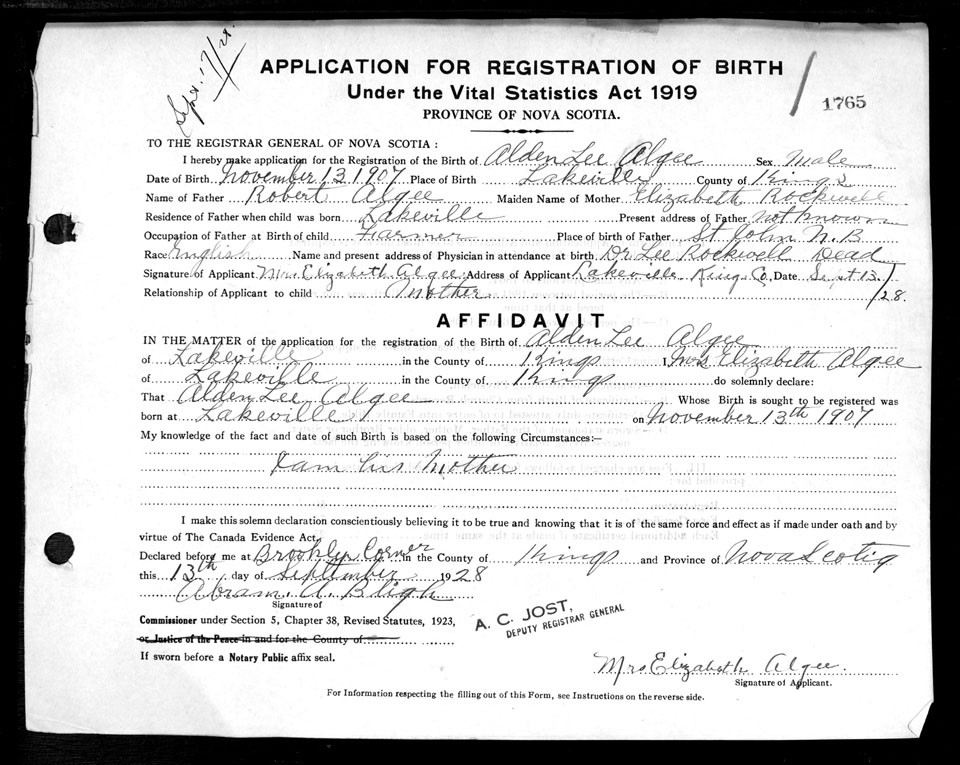 Sept. 17/28
APPLICATION FOR REGISTRATION OF BIRTH
Under the Vital Statistics Act 1919
PROVINCE OF NOVA SCOTIA.
1765
TO THE REGISTRAR GENERAL OF NOVA SCOTIA :
I hereby make application for the Registration of the Birth of Alden Lee Algee Sex Male
Date of Birth November 13 1907 Place of Birth Lakeville County of Kings
Name of Father Robert Algee Maiden Name of Mother Elizabeth Rockwell
Residence of Father when child was born Lakeville Present address of Father not known
Occupation of Father at Birth of child Farmer Place of birth of Father St John N.B
Race English Name and present address of Physician in attendance at birth Dr Lee Rockwell Dead
Signature of Applicant Mrs Elizabeth Algee Address of Applicant Lakeville Kings Co. Date Sept 13/28.
Relationship of Applicant to child Mother
AFFIDAVIT
IN THE MATTER of the application for the registration of the Birth of Alden Lee Algee
of Lakeville in the County of Kings I, Mrs Elizabeth Algee
of Lakeville in the County of Kings do solemnly declare:
That Alden Lee Algee Whose Birth is sought to be registered was
born at Lakeville on November 13th 1907
My knowledge of the fact and date of such Birth is based on the following Circumstances:—
I am his Mother
I make this solemn declaration conscientiously believing it to be true and knowing that it is of the same force and effect as if made under oath and by
virtue of The Canada Evidence Act.
Declared before me at Brooklyn Corner in the County of Kings and Province of Nova Scotia
this 13th day of September 1928
Abram. A. Bligh
Signature of
Commissioner under Section 5, Chapter 38, Revised Statutes, 1923,
or Justice of the Peace in and for the County of
If sworn before a Notary Public affix seal.
A. C. JOST,
DEPUTY REGISTRAR GENERAL
Mrs Elizabeth Algee.
Signature of Applicant.
For Information respecting the filling out of this Form, see Instructions on the reverse side.